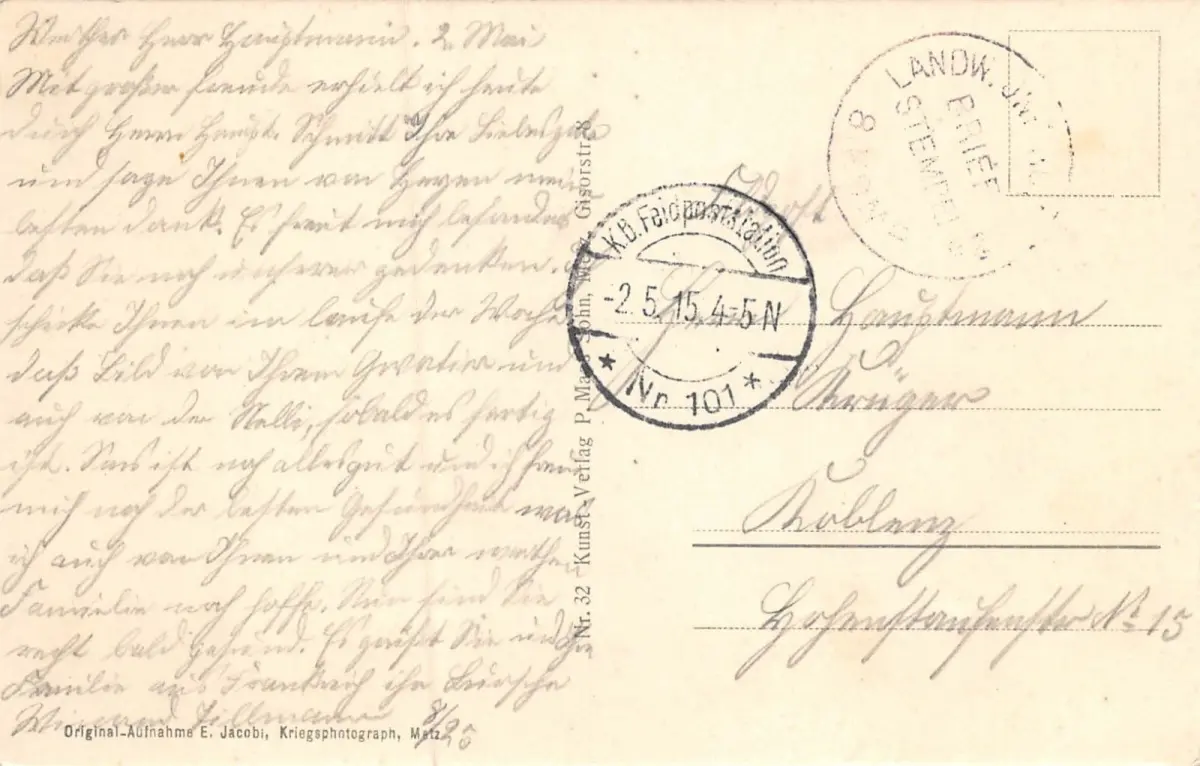 Werther Herr Hauptmann. 2. Mai
Mit großer Freude erhielt ich heute
durch Herrn Haupt. Schmitt Ihre Liebesgabe
und sage Ihnen von Herzen mein
besten Dank. Es freut mich besonders
daß Sie noch unserer gedenken.
schicke Ihnen im laufe der Woche
daß Bild von Ihrem und
auch von der Nelli, sobald es fertig
ist. Sonst ist noch alles gut und ich
mich noch der besten Gesundheit was
ich auch von Ihnen und Ihrer werthen
Familie noch hoffe. Nun sind Sie
recht bald gesund. Es grüßt Sie und Ihre
Familie aus Frankreich ihr Bursche
Tillmann 8/25
Original-Aufnahme E. Jacobi, Kriegsphotograph, Metz.
Nr. 32 Kunst-Verlag P. John, Gisorstr. 8
K.B. Feldpoststation
-2.5.15.4-5N
* Nr. 101 *
LANDW. INF.
BRIEF
STEMPEL
8
Feldpost
Herrn Hauptmann
Krüger
Koblenz
Hohenstaufenstr № 15